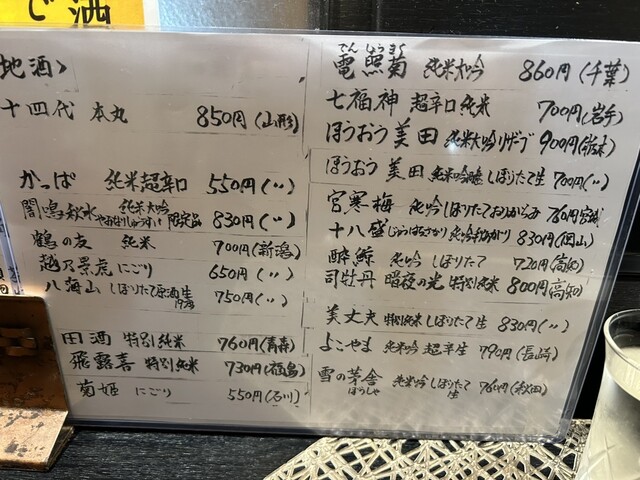 で酒
地酒〉
十四代 本丸 850円(山形)
かっぱ 純米超辛口 550円(〃)
純米大吟 830円(〃)
限定品
鶴の友 純米 700円(新潟)
越乃景虎 にごり 650円(〃)
八海山 しぼりたて原酒生 750円(〃)
田酒 特別純米 760円(青森)
飛露喜 特別純米 730円(福島)
菊姫 にごり 550円(石川)
でんしょうぎく
電照菊 純米大吟 860円(千葉)
七福神 超辛口純米 700円(岩手)
ほうおう美田 純米大吟リザーブ 900円(栃木)
ほうおう 美田 純米吟醸しぼりたて生 700円(〃)
宮寒梅 純吟しぼりたておりがらみ 760円(宮城)
十八盛 830円(岡山)
酔鯨 純吟 しぼりたて 720円(高知)
司牡丹 暗夜の光 特別純米 800円(高知)
美丈夫 特別純米しぼりたて生 830円(〃)
よこやま 純米吟 超辛生 790円(長崎)
雪の茅舎 純米吟しぼりたて 760円(秋田)
ぼうしゃ 生